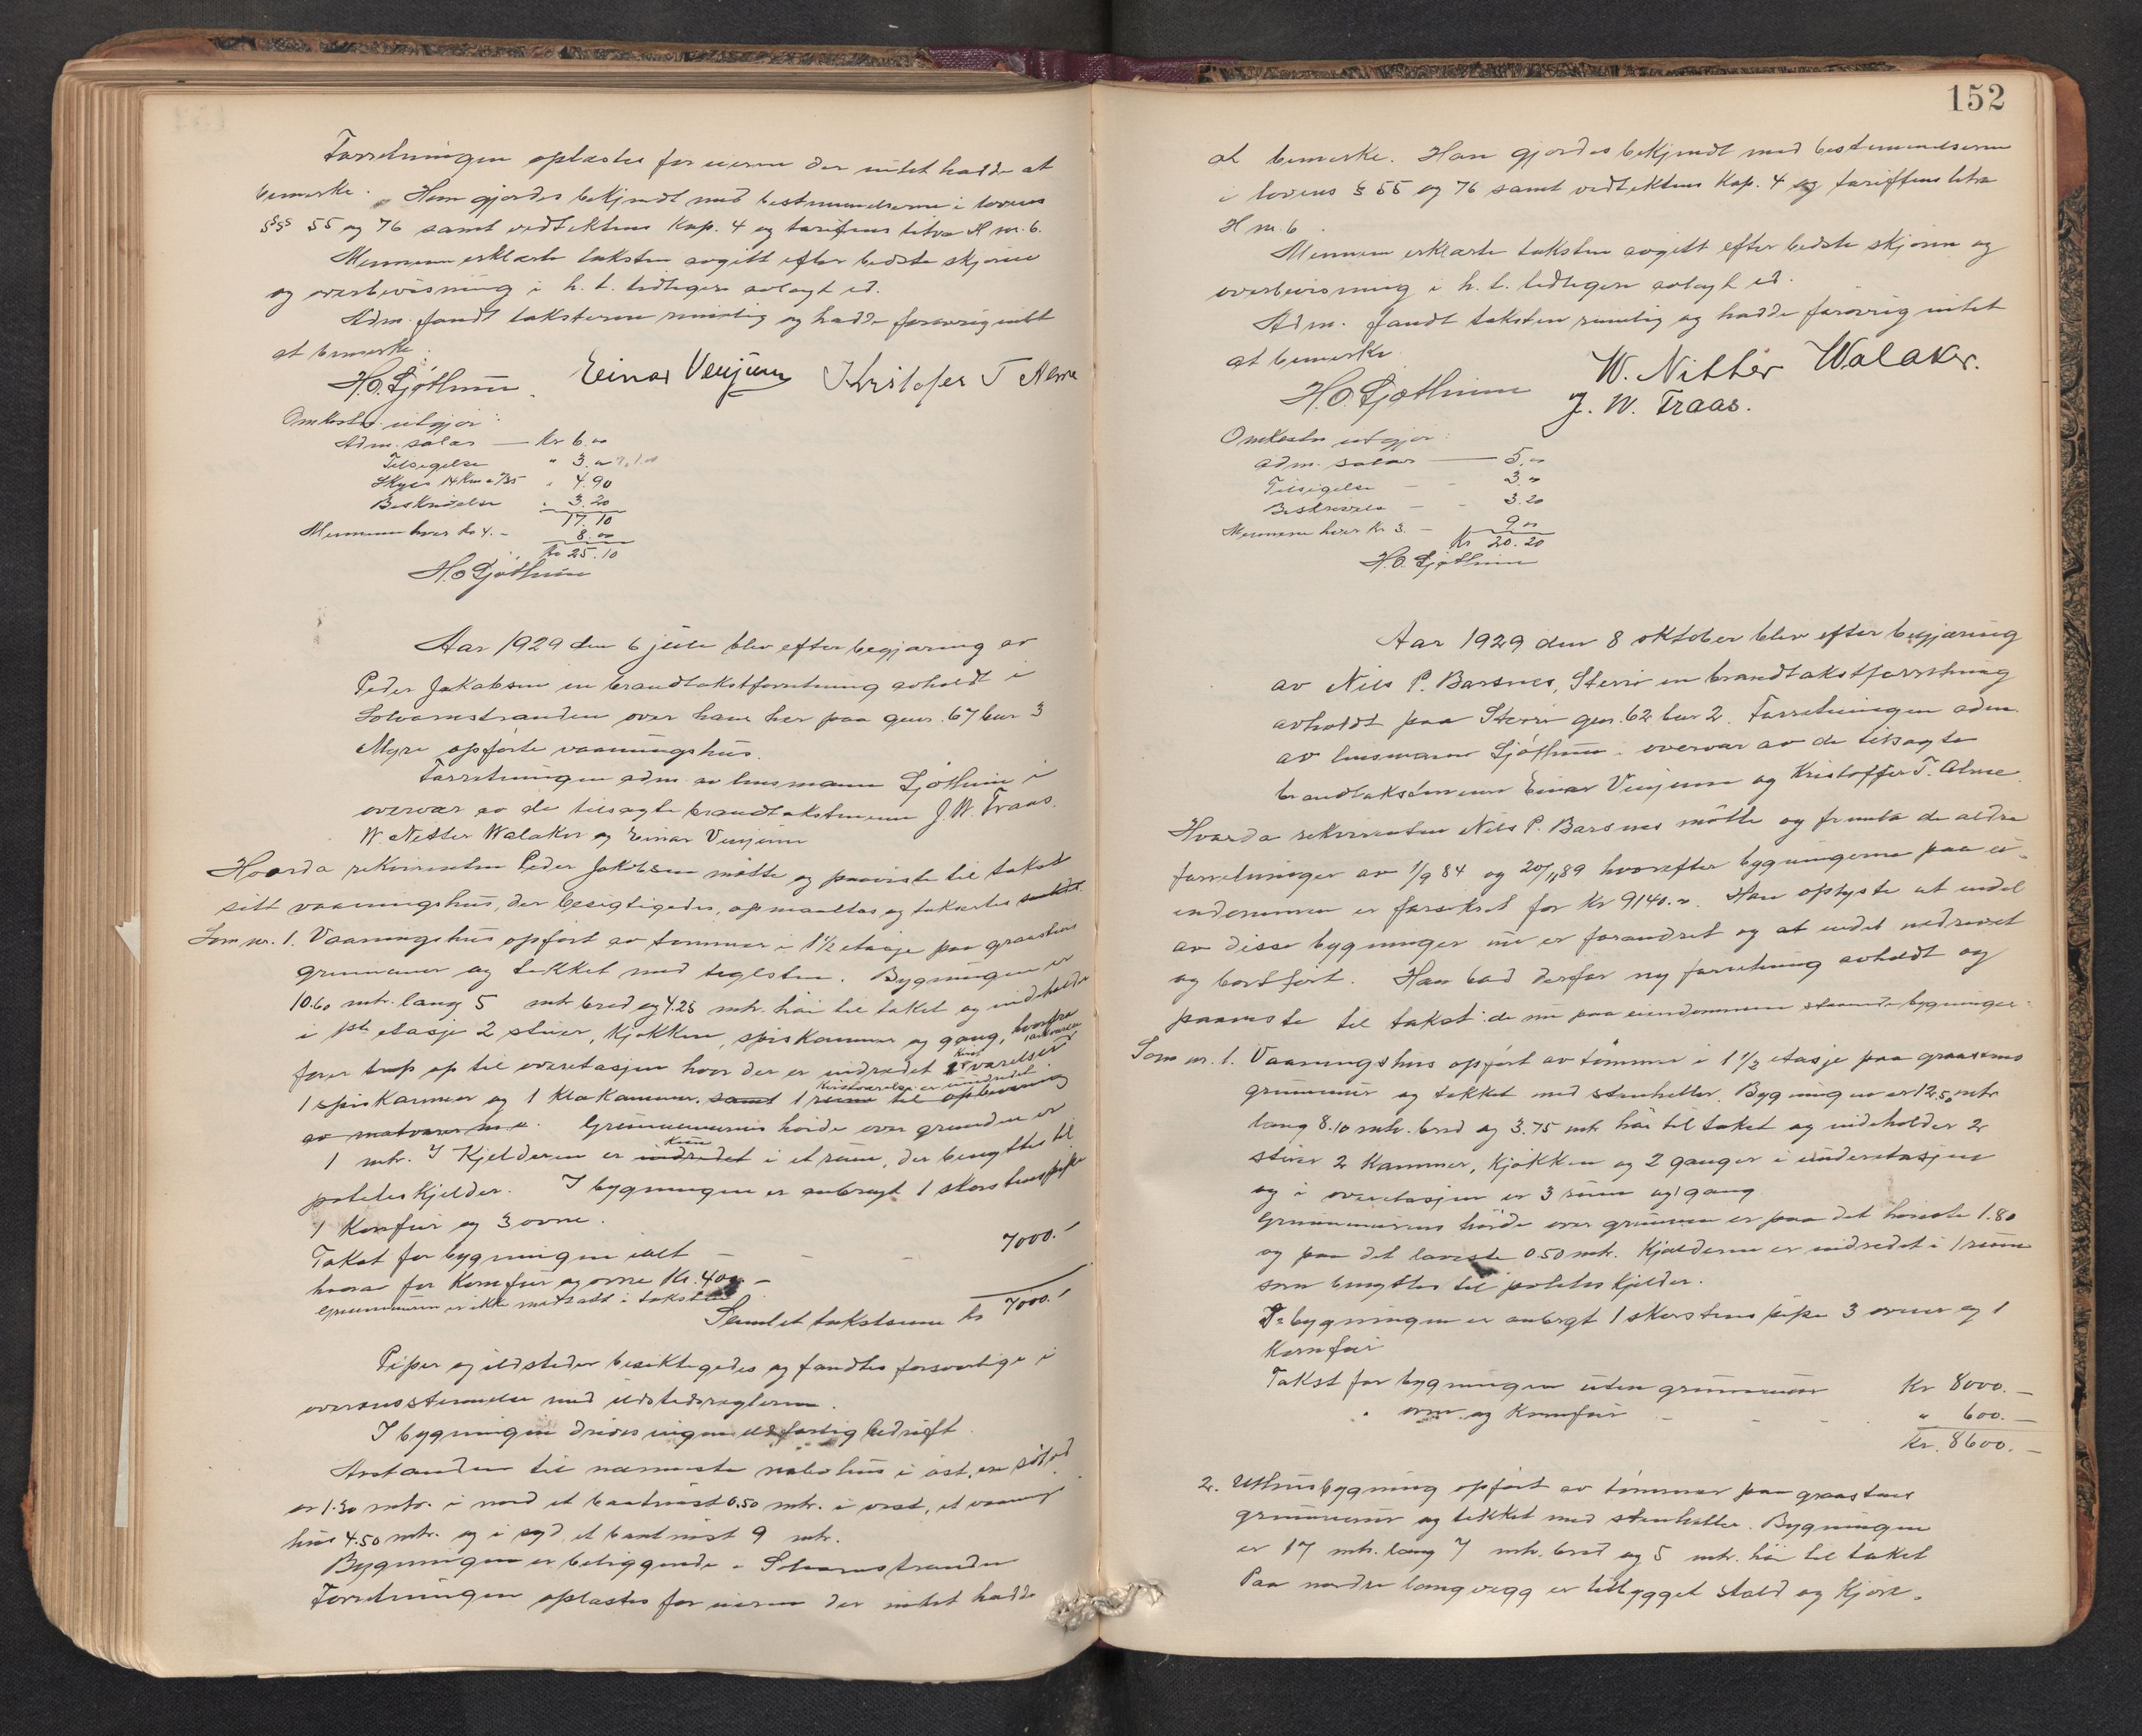 Forretningen oplæstes for eieren der intet hadde at
bemerke. Han gjordes bekjendt med bestemmelserne i lovens
§§§ 55 og 76 samt vedtektens Kap. 4 og tarifens litra H nr. 6.
Mennene erklærte taksten avgitt efter bedste skjønn
og overbevisning i h. t. tidligere avlagt ed.
Adm. fandt taksterne rimelig og hadde forøvrig intet
at bemerke.
H.O. Sjøthun. Einar Venjum Kristofer T Alme
Omkostn. utgjør:
Adm. salær — Kr 6.00
Tilsigelse " 3.00
Skyss 14 Km a /35 " 4.90
Beskrivelse " 3.20
17.10
Mennene hver kr 4.- 8.00
Kr 25.10
H.O Sjøthun
Aar 1929 den 6 juli blev efter begjæring av
Peder Jakobsen en brandtakstforretning avholdt i
Solvornstranden over hans her paa gnr. 67 bnr 3
Myre opførte vaaningshus.
Forretningen adm. av lensmann Sjøthun i
overvær av de tilsagte brandtakstmenn J. W. Traas.
W. Nitter Walaker og Einar Venjum
Hvorda rekvirenten Peder Jakobsen møtte og paaviste til takst
sitt vaaningshus, der besigtigedes, opmaaltes og takertes
Som nr. 1. Vaaningshus opført av tømmer i 1 1/2 etasje paa graastens
grunnmur og tekket med teglsten. Bygningen er
10.60 mtr. lang 5 mtr bred og 4.25 mtr. høi til taket og indeholder
i 1ste etasje 2 stuer, Kjøkken, spiskammer og gang, hvorfra
fører trap op til overetasjen hvor der er indredet 2 værelser
1 spiskammer og 1 Klækammer. samt 1 rum til opbevaring
Kvistværelse er uindredet
av matvarer m.v. Grunnmurens høide over grunden er
1 mtr. I Kjelderen er indredet i et rum, der benyttes til
potetskjelder. I bygningen er anbragt 1 skorstenspipe
1 Komfur og 3 ovne.
Takst for bygningen ialt - - - 7000.-
hvorav for Komfur og ovne Kr. 400.-
Grunnmuren er ikke medtatt i taksten
Samlet takstsum kr 7000.-
Piper og ildsteder besiktigedes og fandtes forsvarlige i
overensstemmelse med ildstedsreglerne.
I bygningen drives ingen ildsfarlig bedrift.
Avstanden til nærmeste nabohus i øst, en
er 1.30 mtr. i nord et baatnøst 0.50 mtr. i vest, et vaanings
hus 4.50 mtr. og i syd et baatnøst 9 mtr.
Bygningen er beliggende i Solvornstranden
Forretningen oplæstes for eieren der intet hadde
152
at bemerke. Han gjordes bekjendt med bestemmelserne
i lovens § 55 og 76 samt vedtektens Kap. 4 og tariffens litra
H nr. 6
Mennene erklærte taksten avgitt efter bedste skjønn og
overbevisning i h. t. tidligere avlagt ed.
Adm. fandt taksten rimelig og hadde forøvrig intet
at bemerke.
H.O. Sjøthun W. Nitter Walaker.
og J. W. Traas.
Omkostn utgjør:
adm. salær — 5.00
Tilsigelse - - 3.00
Beskrivelse - - 3.20
Mennene hver Kr 3. - 9.00
Kr 20.20
H.O. Sjøthun
Aar 1929 den 8 oktober blev efter begjæring
av Nils P. Barsnes, Sterri en brandtakstforretning
avholdt paa Sterri gnr. 62 bnr 2. Forretningen adm.
av lensmann Sjøthun i overvær av de tilsagte
brandtakstmenn Einar Venjum og Kristoffer T. Alme.
Hvorda rekvirenten Nils P. Barsnes møtte og fremla de ældre
forretninger av 1/9 84 og 20/11 89 hvorefter bygningerne paa ei-
endommen er forsikret for Kr 9140.00. Han oplyste at endel
av disse bygninger nu er forandret og at endel nedrevet
og bortført. Han bad derfor ny forretning avholdt og
paaviste til takst de nu paa eiendommen staaende bygninger:
Som nr. 1. Vaaningshus opført av tømmer i 1 1/2 etasje paa graastens
grunnmur og tekket med stenheller. Bygningen er 12.50 mtr
lang 8.10 mtr. bred og 3.75 mtr høi til taket og indeholder 2
stuer 2 Kammer, Kjøkken og 2 ganger i underetasjen
og i overetasjen er 3 rum og 1 gang
Grunnmurens høide over grunnen er paa det høieste 1.80
og paa det laveste 0.50 mtr. Kjelderen er indredet i 1 rum
som benyttes til potetskjelder.
I bygningen er anbragt 1 skorstens pipe 3 ovner og 1
Komfur
Takst for bygningen uten grunnmur Kr 8000.—
" ovn og Komfur - - - " 600.—
Kr. 8600.—
2. Uthusbygning opført av tømmer paa graastens
grunnmur og tekket med stenheller. Bygningen
er 17 mtr. lang 7 mtr. bred og 5 mtr. høi til taket
Paa nordre langvegg er tilbygget stald og Kjøre-